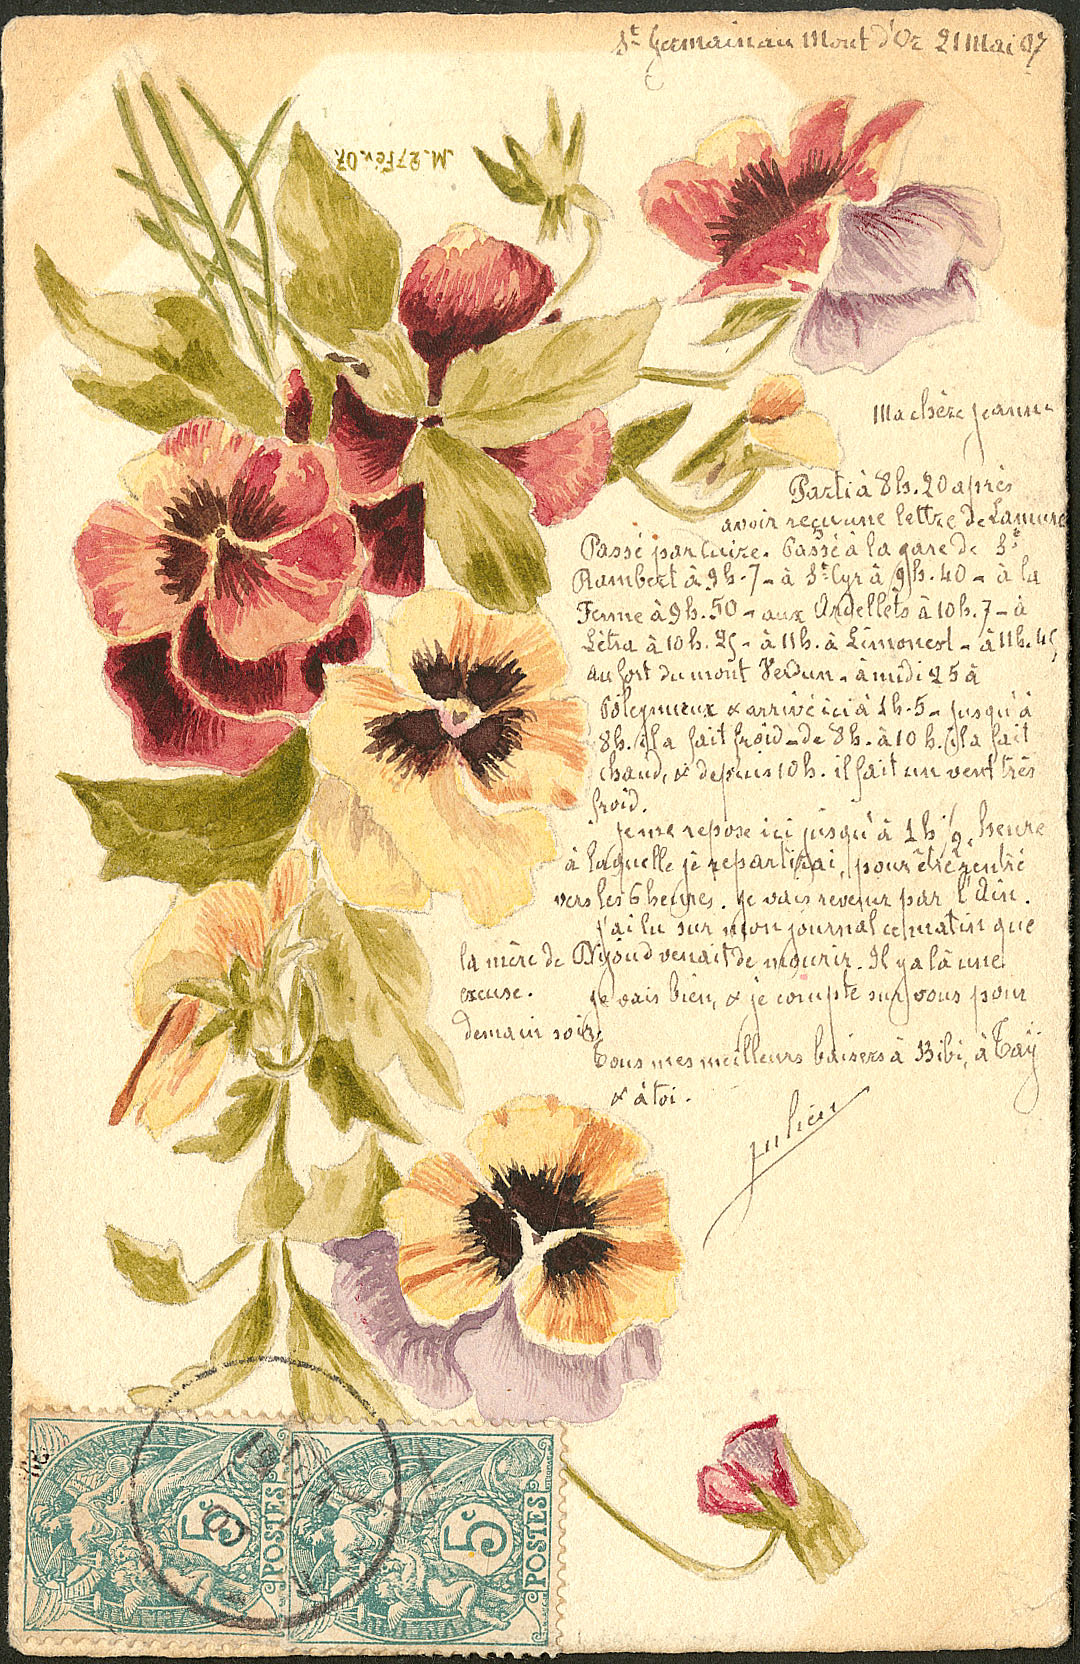 St Germain au Mont d'Or 21 Mai 07
M. 27 Fév. 07
Ma chère Jeanne
Parti à 8h.20 après
avoir reçu une lettre de Lamure
Passé par Cuire. Passé à la gare de St
Rambert à 9h-7- à St Cyr à 9h.40- à la
Ferme à 9h.50- aux Ondellets à 10h.7- à
à 10h.25- à 11h. à Limonest- à 11h.45
au fort du mont Verdun- à midi 25 à
Poleymieux & arrivé ici à 1h-5- jusqu'à
8h. il a fait froid- de 8h. à 10h. il a fait
chaud, & depuis 10h. il fait un vent très
froid.
Je me repose ici jusqu'à 1h ½, heure
à laquelle je repartirai, pour être rentré
vers les 6 heures. Je vais revenir par l'Ain.
J'ai lu sur mon journal ce matin que
la mère de venait de mourir. Il y a là une
excuse. Je vais bien, & je compte sur vous pour
demain soir.
Tous mes meilleurs baisers à Bibi, à Taÿ
& à toi.
Julien
5c POSTES
5c POSTES